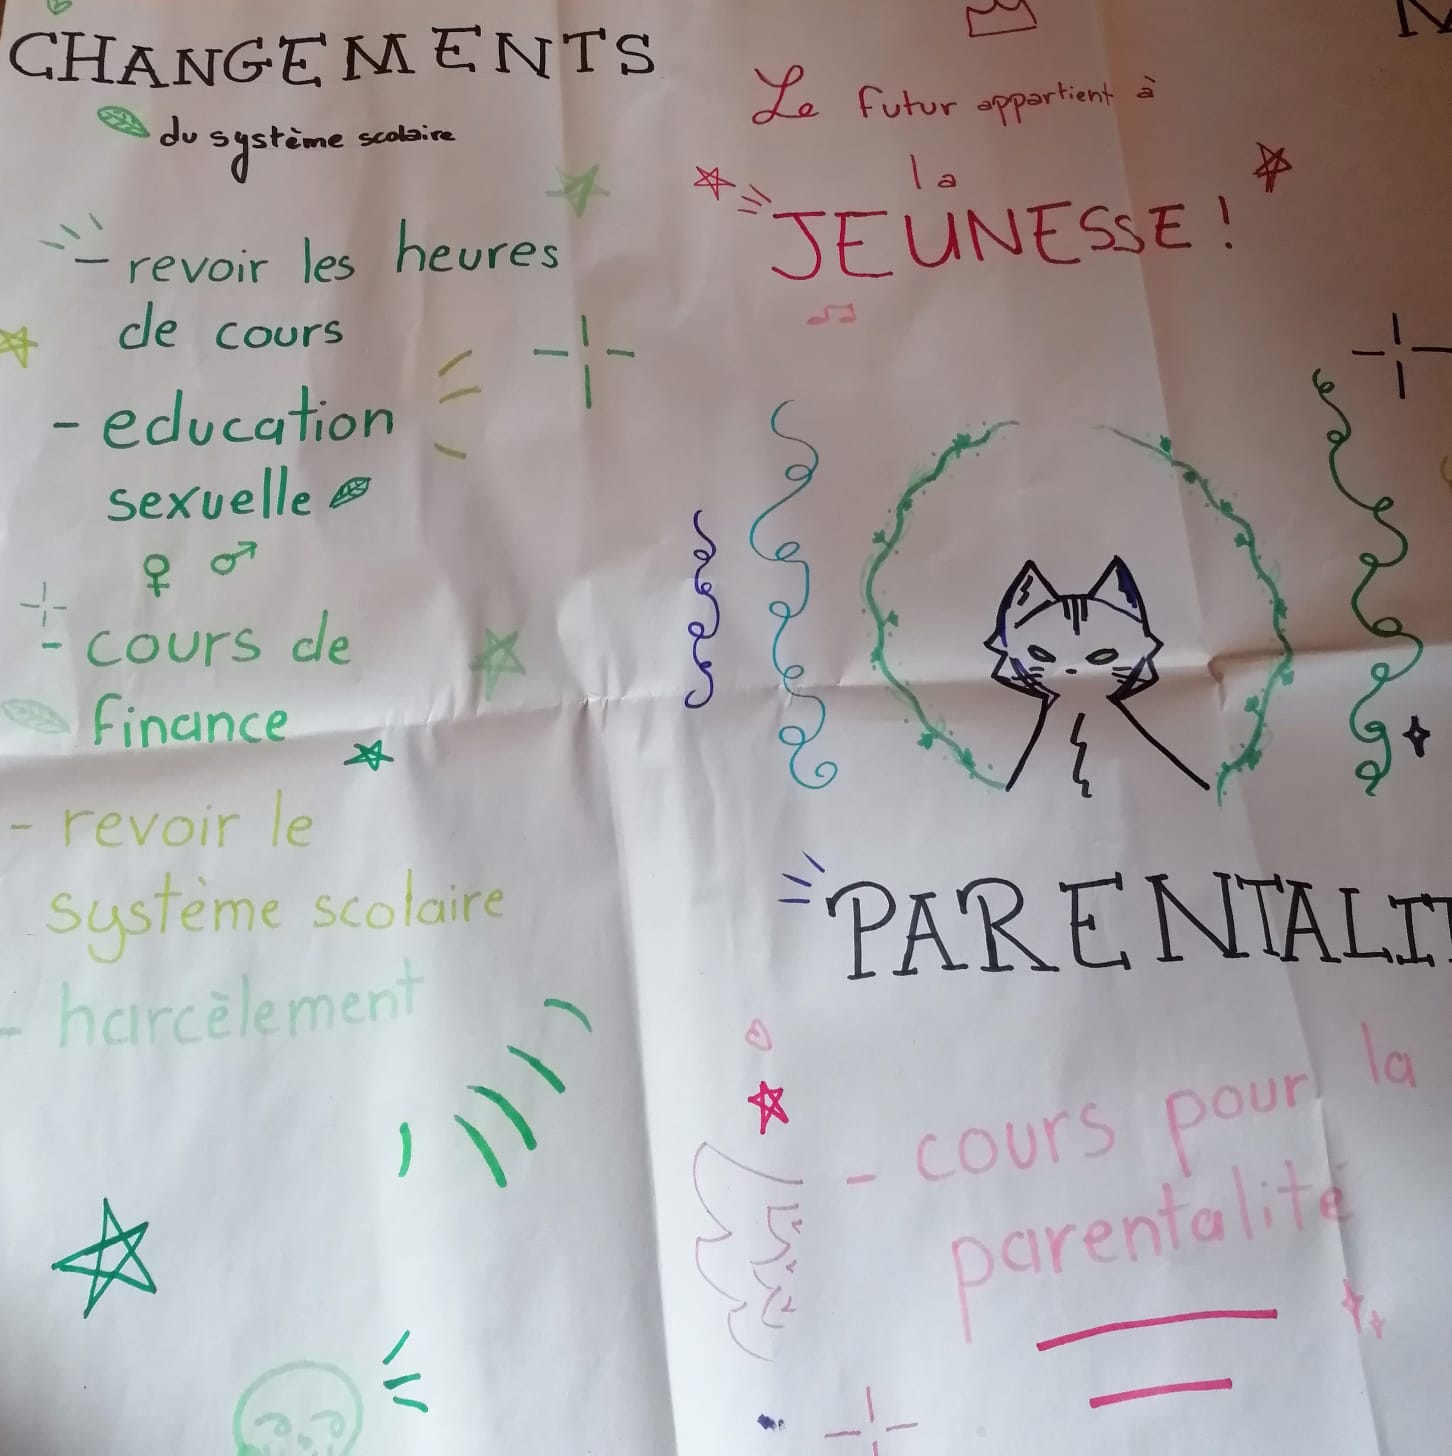 CHANGEMENTS
du système scolaire
- revoir les heures
de cours
- education
sexuelle
- cours de
finance
- revoir le
système scolaire
- harcèlement
Le futur appartient à
la
JEUNESSE !
PARENTALIT
- cours pour la
parentalité